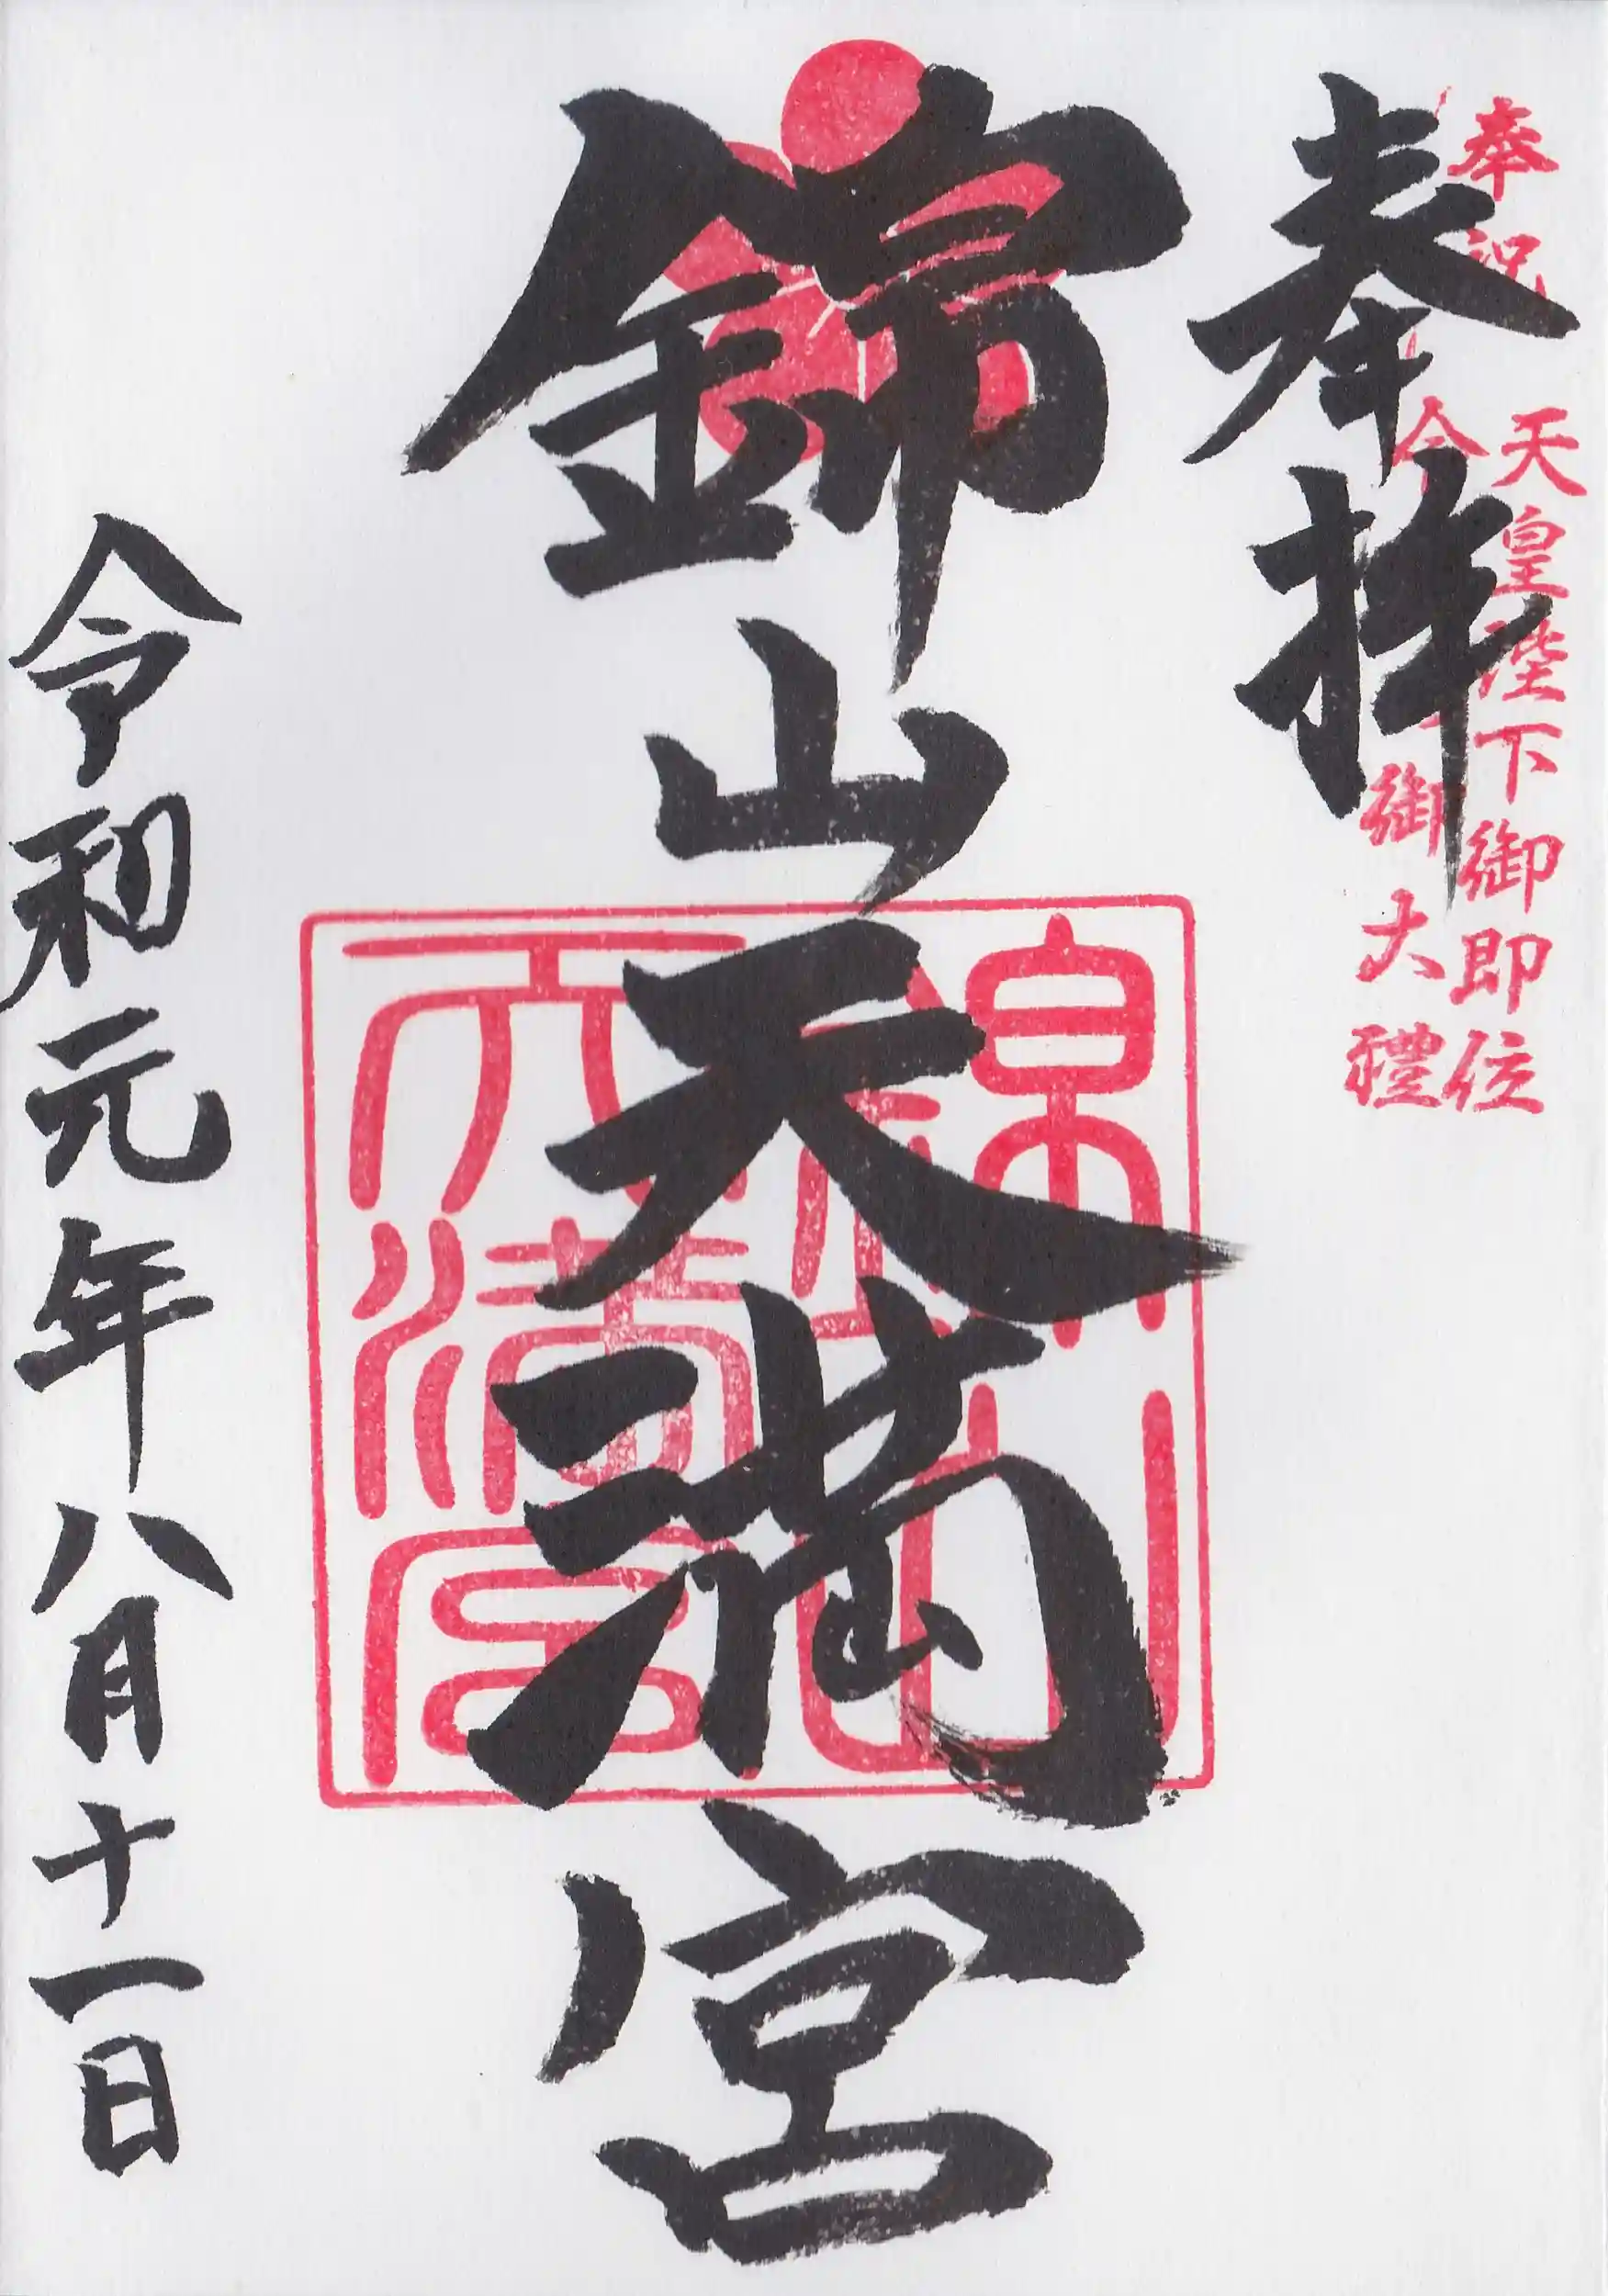 奉祝
天皇陛下御即位
御大禮
奉拝
錦山天満宮
錦山天満宮
令和元年八月十一日